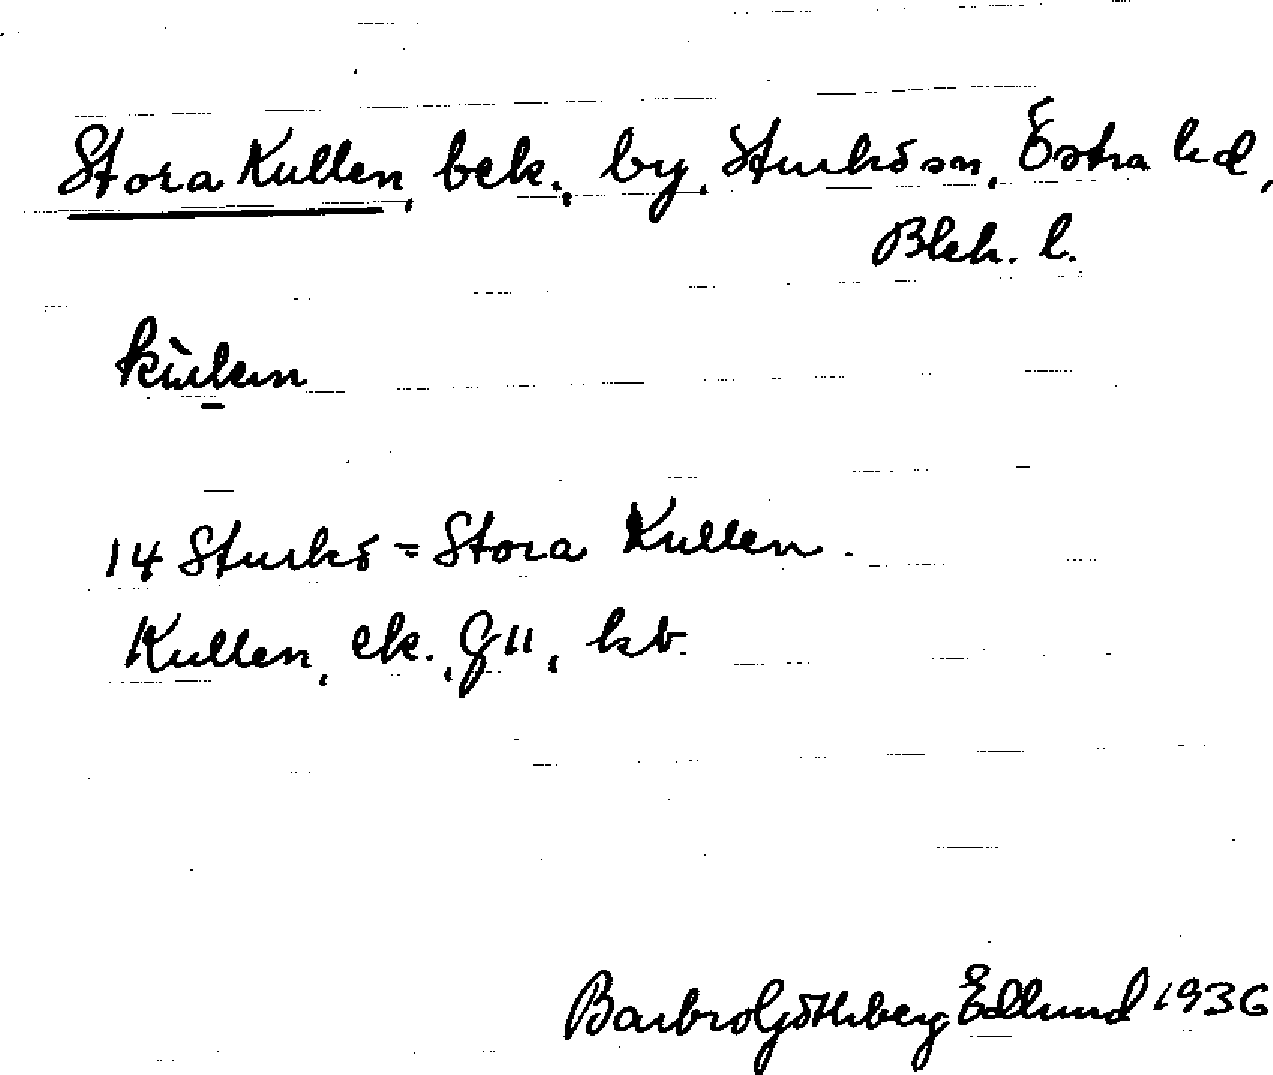 Stora Kullen, bek., by, Sturkö sn, Östra hd,
Blek. l.
14 Sturkö = Stora Kullen.
Kullen, ek., G 11, kb.
Barbro Götherberg Edlund 1936